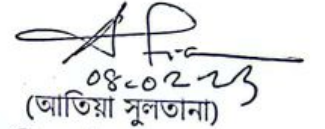 08-02-23
(আতিয়া সুলতানা)